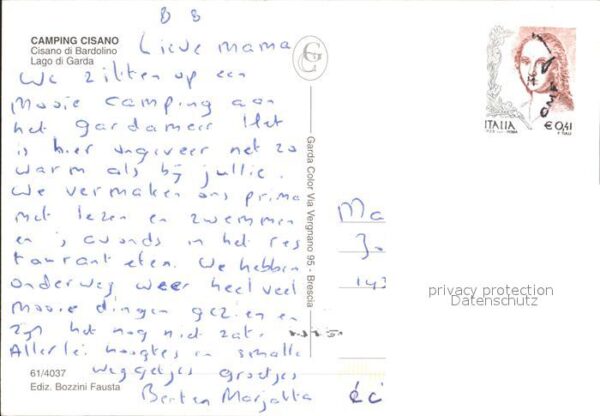 8 8
CAMPING CISANO
Cisano di Bardolino
Lago di Garda
Lieve mama
We zitten op een
mooie camping aan
het gardameer Het
is hier ongeveer net zo
warm als bij jullie.
We vermaken ons prima
met lezen en zwemmen
en 's avonds in het res
taurant eten. We hebben
onderweg weer heel veel
mooie dingen gezien en
zijn het nog niet zat.
Allerlei hoogtes en smalle
weggetjes groetjes
Berten Marjatta
61/4037
Ediz. Bozzini Fausta
Garda Color Via Vergnano 95 - Brescia
ITALIA
€ 0,41
Ma
Jo
143
privacy protection
Datenschutz